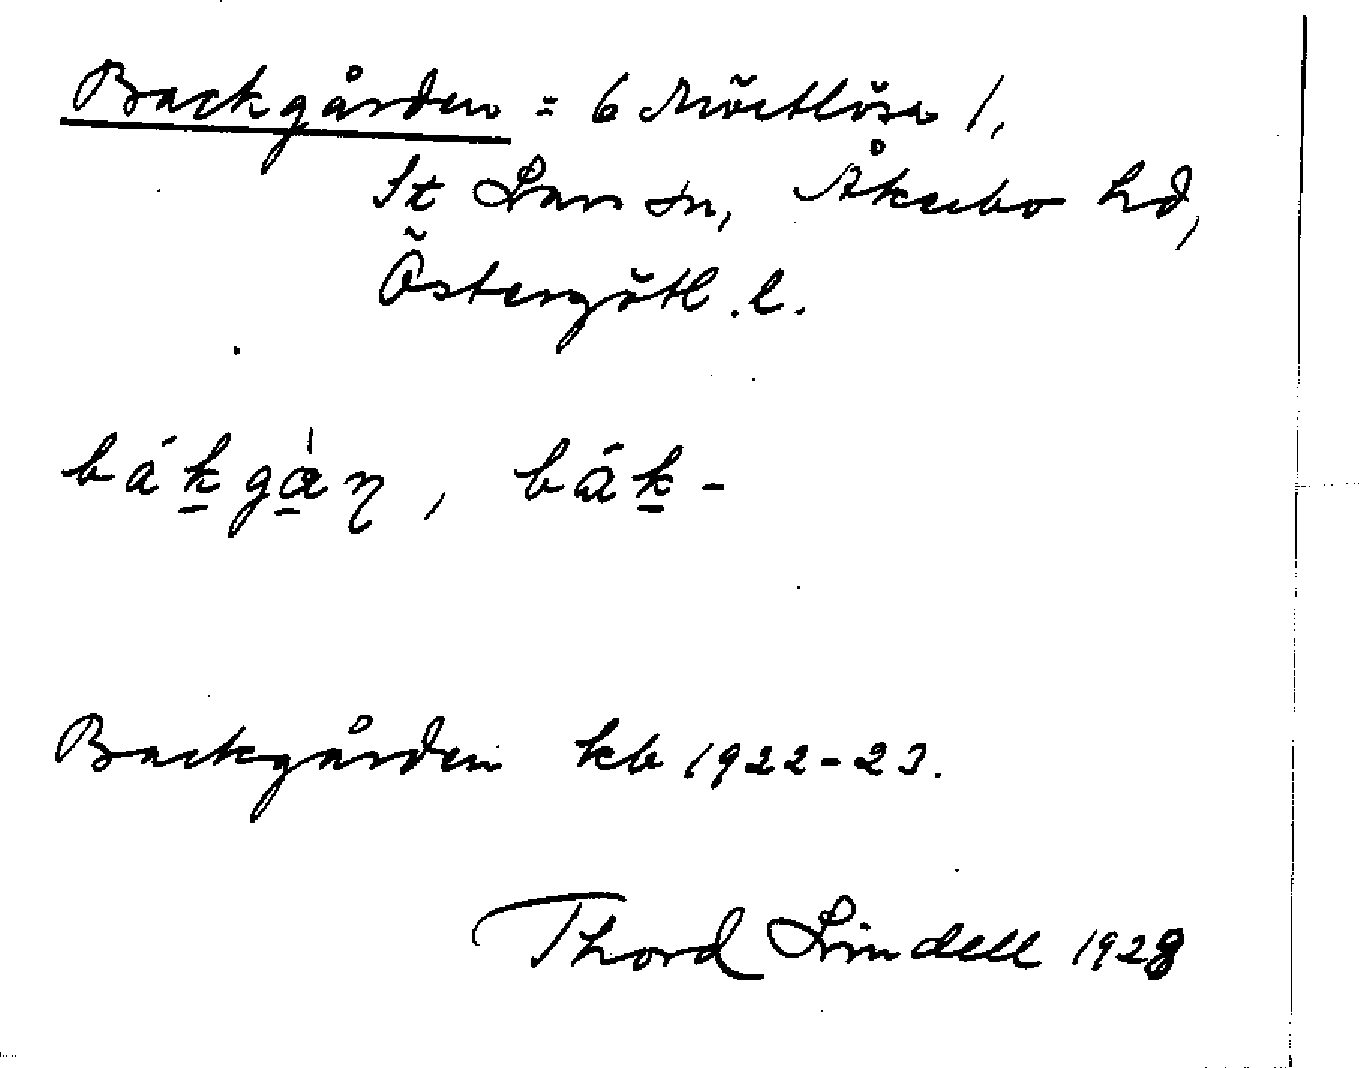 Backgården = 6 Mörtlösa 1,
St Lars sn, Åkerbo hd,
Östergötl. l.
bákgàn, bák-
Backgården kb 1922-23.
Thord Lindell 1928